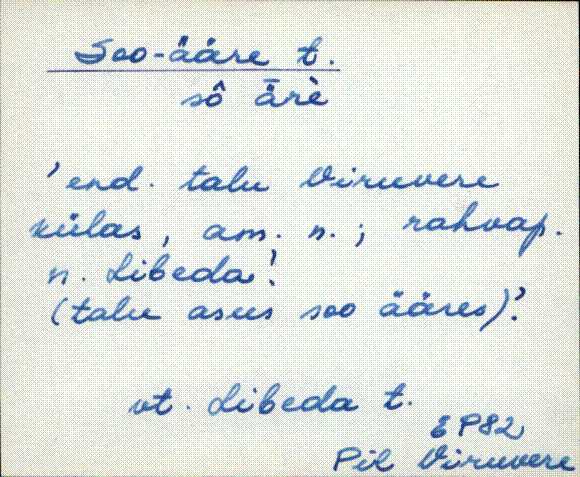 Soo-ääre t.
sô ǟrè
'end. talu Viruvere
külas, am. n.; rahvap.
n. Libeda'.
(talu asus soo ääres)'.
vt. Libeda t.
EP82
Pil Viruvere